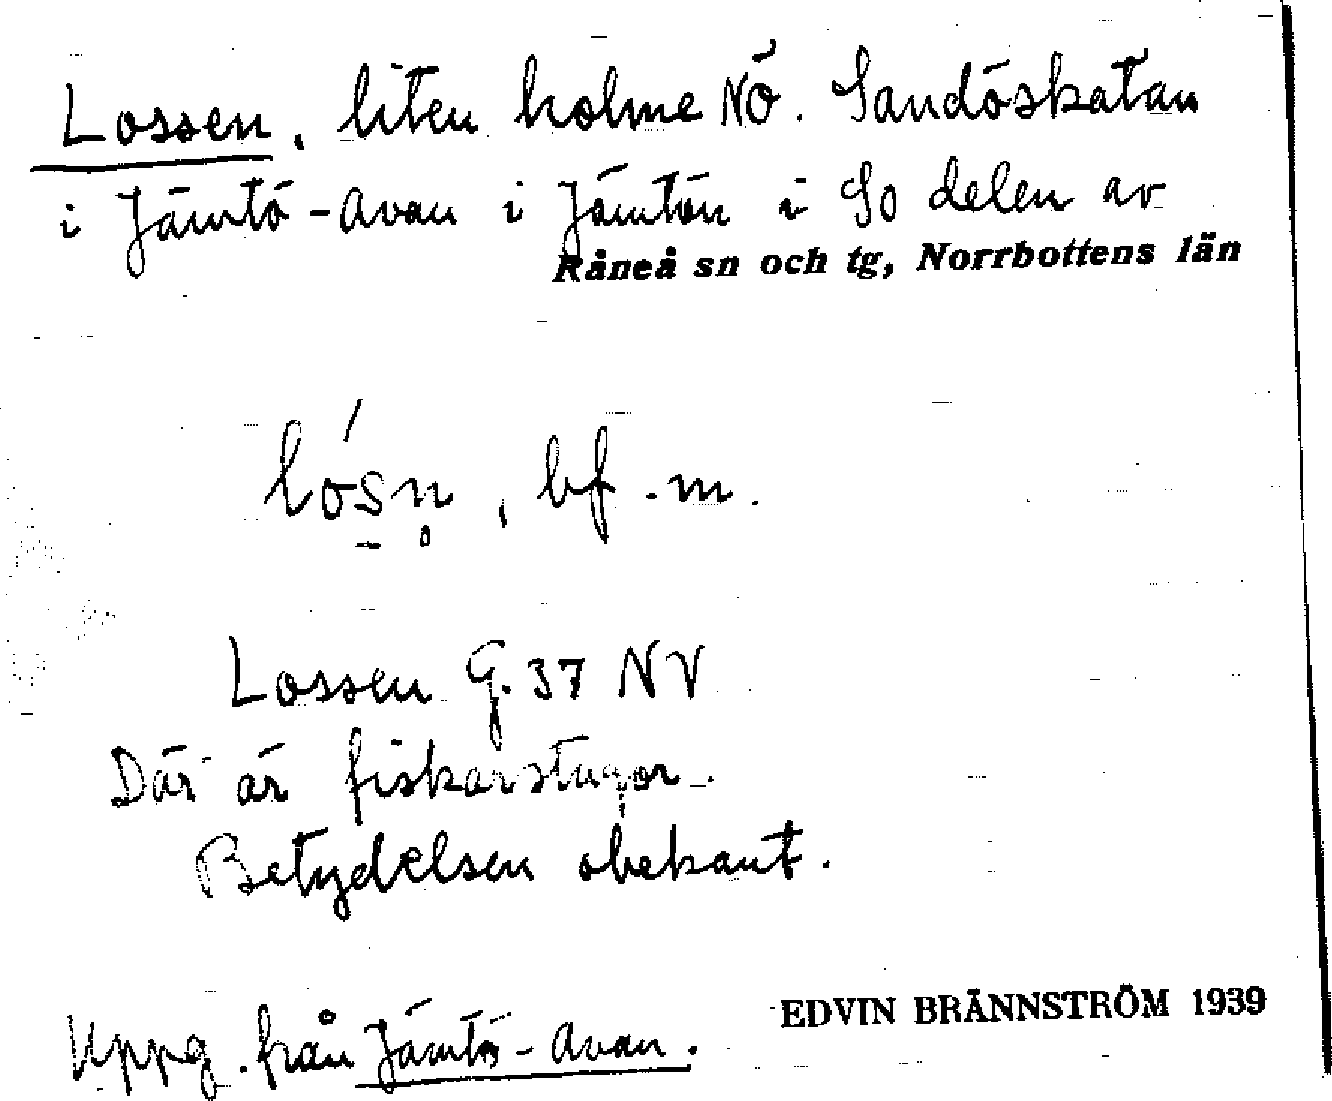 Lossen, liten holme NÖ. Sandöskatan
i Jämtö-Avan i Jämtön i SO delen av
Råneå sn och tg, Norrbottens län
lós̱n̥, bf. m.
Lossen G. 37 NV
Där är fiskarstugor.
Betydelsen obekant.
Uppg. från Jämtö-Avan.
EDVIN BRÄNNSTRÖM 1939